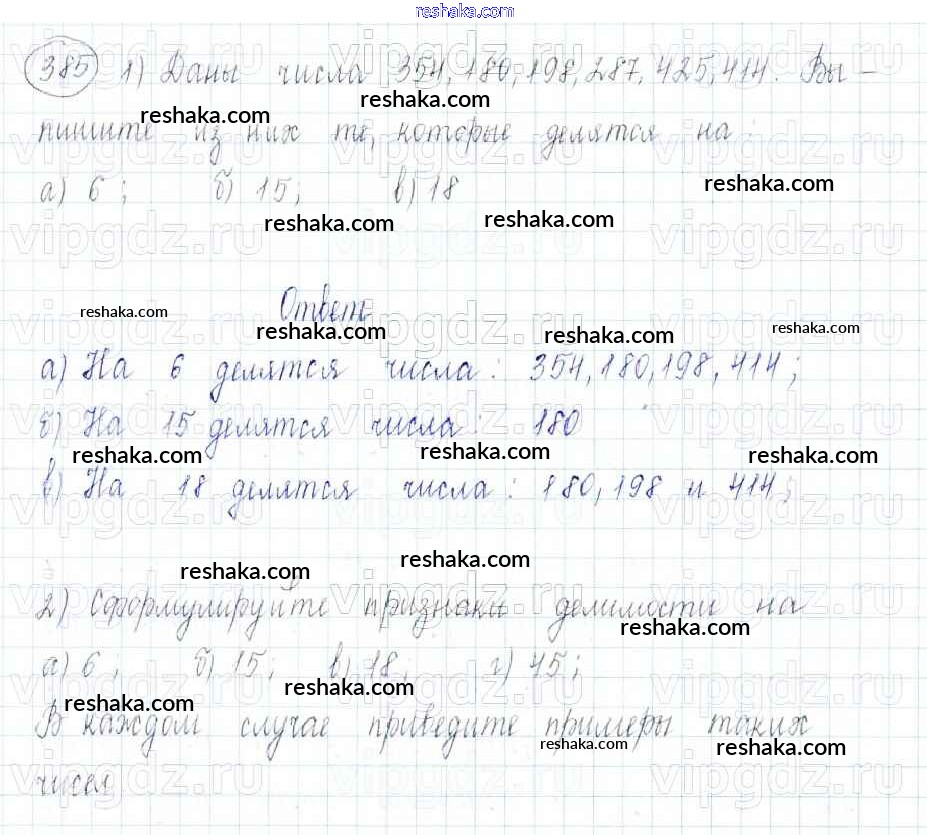 reshaka.com
385 1) Даны числа 354, 180, 198, 287, 425, 414. Вы-
reshaka.com reshaka.com
пишите из них те, которые делятся на
reshaka.com
а) 6; б) 15; в) 18
reshaka.com reshaka.com
vipgdz.ru vipgdz.ru vipgdz.ru
Ответ
reshaka.com reshaka.com reshaka.com reshaka.com
а) На 6 делятся числа: 354, 180, 198, 414;
б) На 15 делятся числа: 180
reshaka.com reshaka.com reshaka.com
в) На 18 делятся числа: 180, 198 и 414;
reshaka.com reshaka.com
2) Сформулируйте признаки делимости на
reshaka.com
а) 6; б) 15; в) 18; г) 45;
reshaka.com reshaka.com
В каждом случае приведите примеры таких
reshaka.com reshaka.com
чисел
vipgdz.ru vipgdz.ru vipgdz.ru